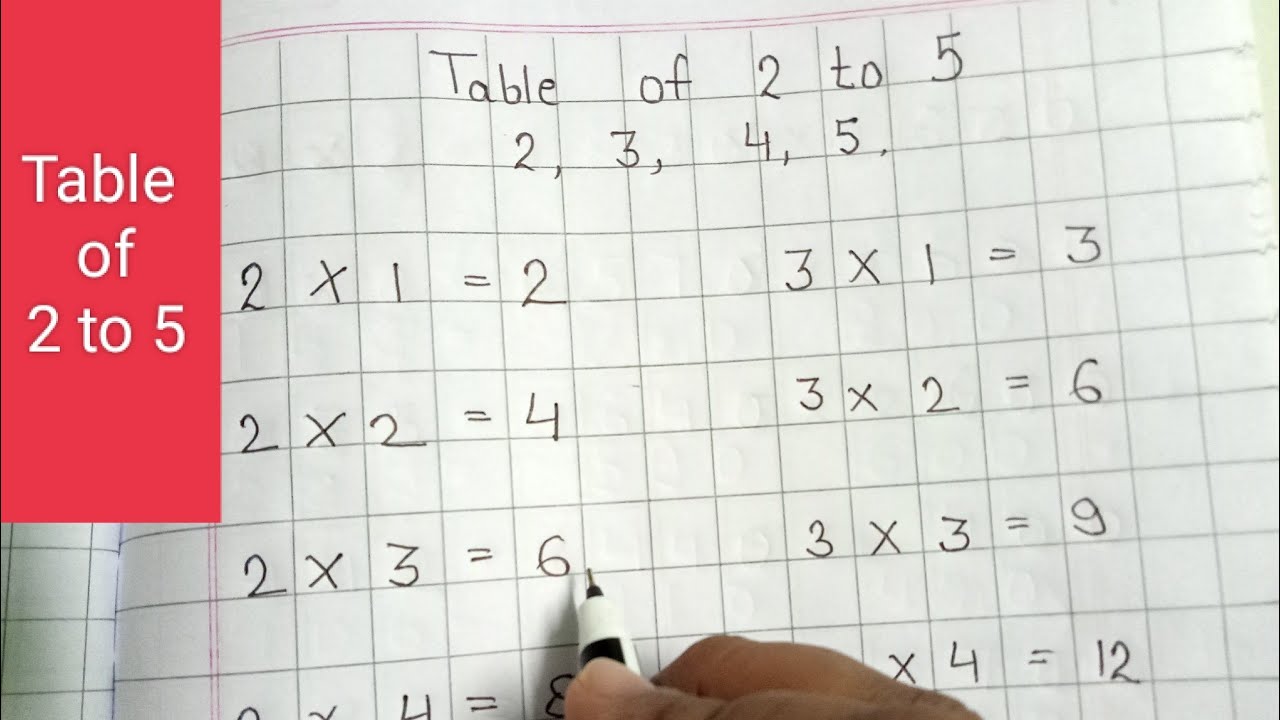 Table
of
2 to 5
Table of 2 to 5
2, 3, 4, 5.
2 X 1 = 2
3 X 1 = 3
2 X 2 = 4
3 X 2 = 6
2 X 3 = 6
3 X 3 = 9
2 X 4 = 8
X 4 = 12